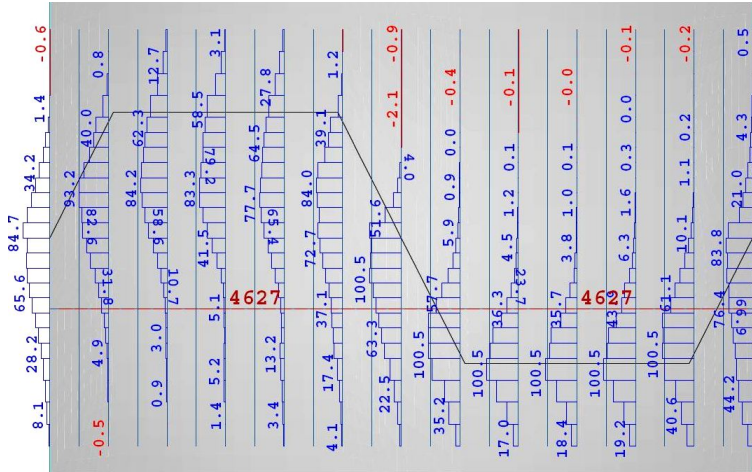 -0.6
1.4
34.2
84.7
65.6
28.2
8.1
0.8
40.0
93.2
82.6
31.8
6.4
-0.5
12.7
62.3
84.2
58.6
10.7
3.0
0.6
3.1
58.5
79.2
83.3
41.5
5.1
5.2
1.4
27.8
64.5
77.7
65.4
4627
13.2
3.4
1.2
39.1
84.0
72.7
37.1
17.4
4.1
-0.9
-2.1
4.0
51.6
100.5
63.3
22.5
-0.4
0.0
0.9
5.9
57.7
100.5
35.2
-0.1
0.1
1.2
4.5
23.7
39.3
100.5
17.0
-0.0
0.1
1.0
3.8
35.7
100.5
18.4
4627
-0.1
0.0
0.3
1.6
6.3
100.5
19.2
-0.2
0.2
1.1
10.1
61.1
100.5
40.9
0.5
4.3
21.0
83.8
76.4
44.2